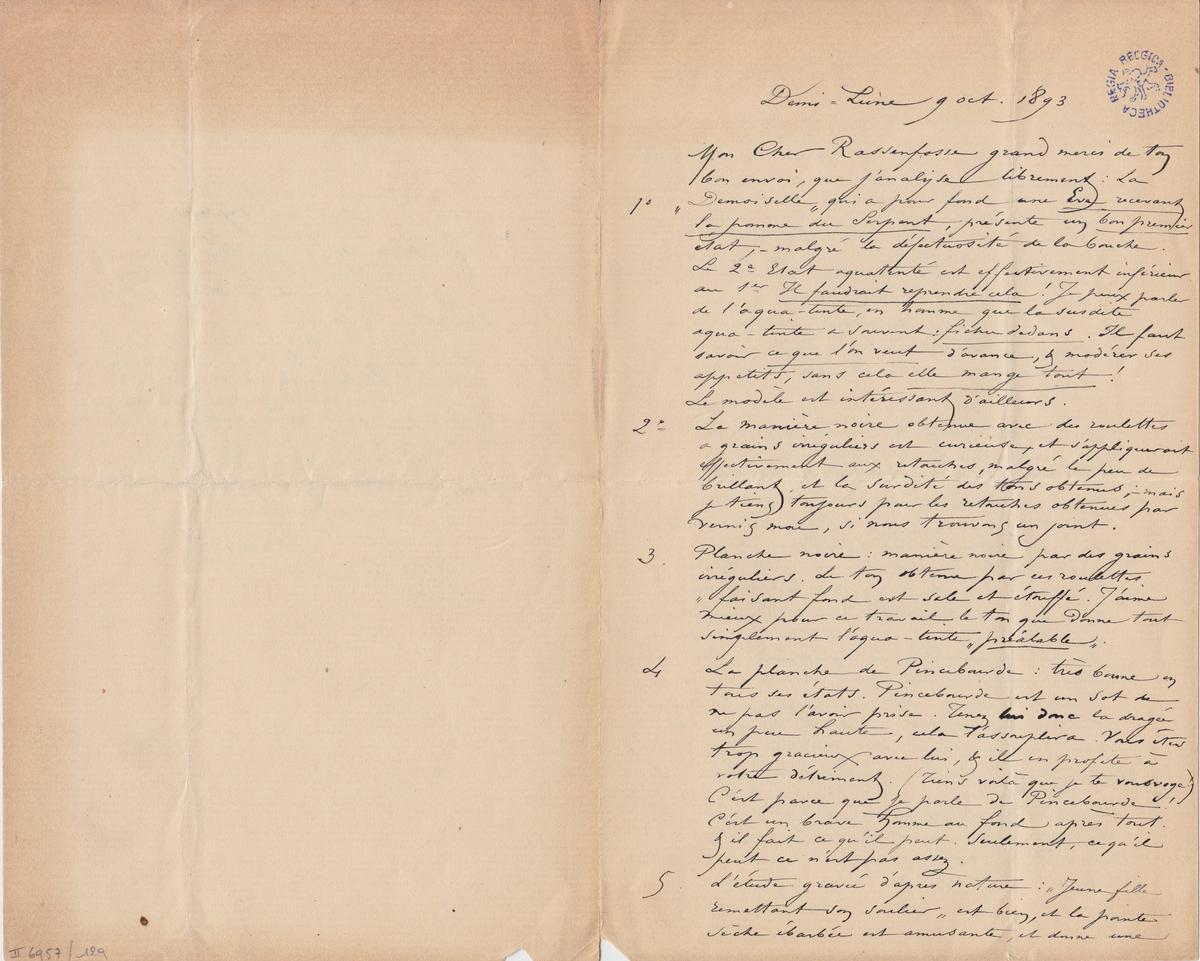 REGIA BELGICA - BIBLIOTHECA
Demi-Lune 9 oct. 1893
Mon Cher Rassenfosse grand merci de ton
bon envoi, que j'analyse librement : La
1° "Demoiselle" qui a pour fond une Eva recevant
la pomme du Serpent, présente un bon premier
état, - malgré la défectuosité de la bouche.
Le 2e Etat aquatinté est effectivement inférieur
au 1er Il faudrait reprendre cela ! Je peux parler
de l'aqua-tinte, en homme que la susdite
aqua-tinte a souvent : fichu dedans. Il faut
savoir ce que l'on veut d'avance, & modérer ses
appétits, sans cela elle mange tout !
Le modèle est intéressant d'ailleurs.
2° La manière noire obtenue avec des roulettes
a grains irréguliers est curieuse, et s'appliquerait
effectivement aux retouches, malgré le peu de
brillant, et la surdité des tons obtenus ; - mais
je tiens toujours pour les retouches obtenues par
vernis mou, si nous trouvons un joint.
3. Planche noire : manière noire par des grains
irréguliers. Le ton obtenu par ces roulettes
"faisant fond est sale et étouffé. J'aime
mieux pour ce travail le ton que donne tout
simplement l'aqua-tinte "préalable".
4 La planche de Pincebourde : très bonne en
tous ses états. Pincebourde est un sot de
ne pas l'avoir prise. Tenez lui donc la dragée
un peu haute, cela l'assouplira. Vous êtes
trop gracieux avec lui, & il en profite à
votre détriment. (Tiens voilà que je te vouvoye !)
C'est parce que je parle de Pincebourde !
C'est un brave homme au fond après tout.
& il fait ce qu'il peut. Seulement, ce qu'il
peut ce n'est pas assez.
5. L'étude gravée d'après nature : "Jeune fille
remettant son soulier" est bien, et la pointe
sèche ébarbée est amusante, et donne une
II 6957 / 129